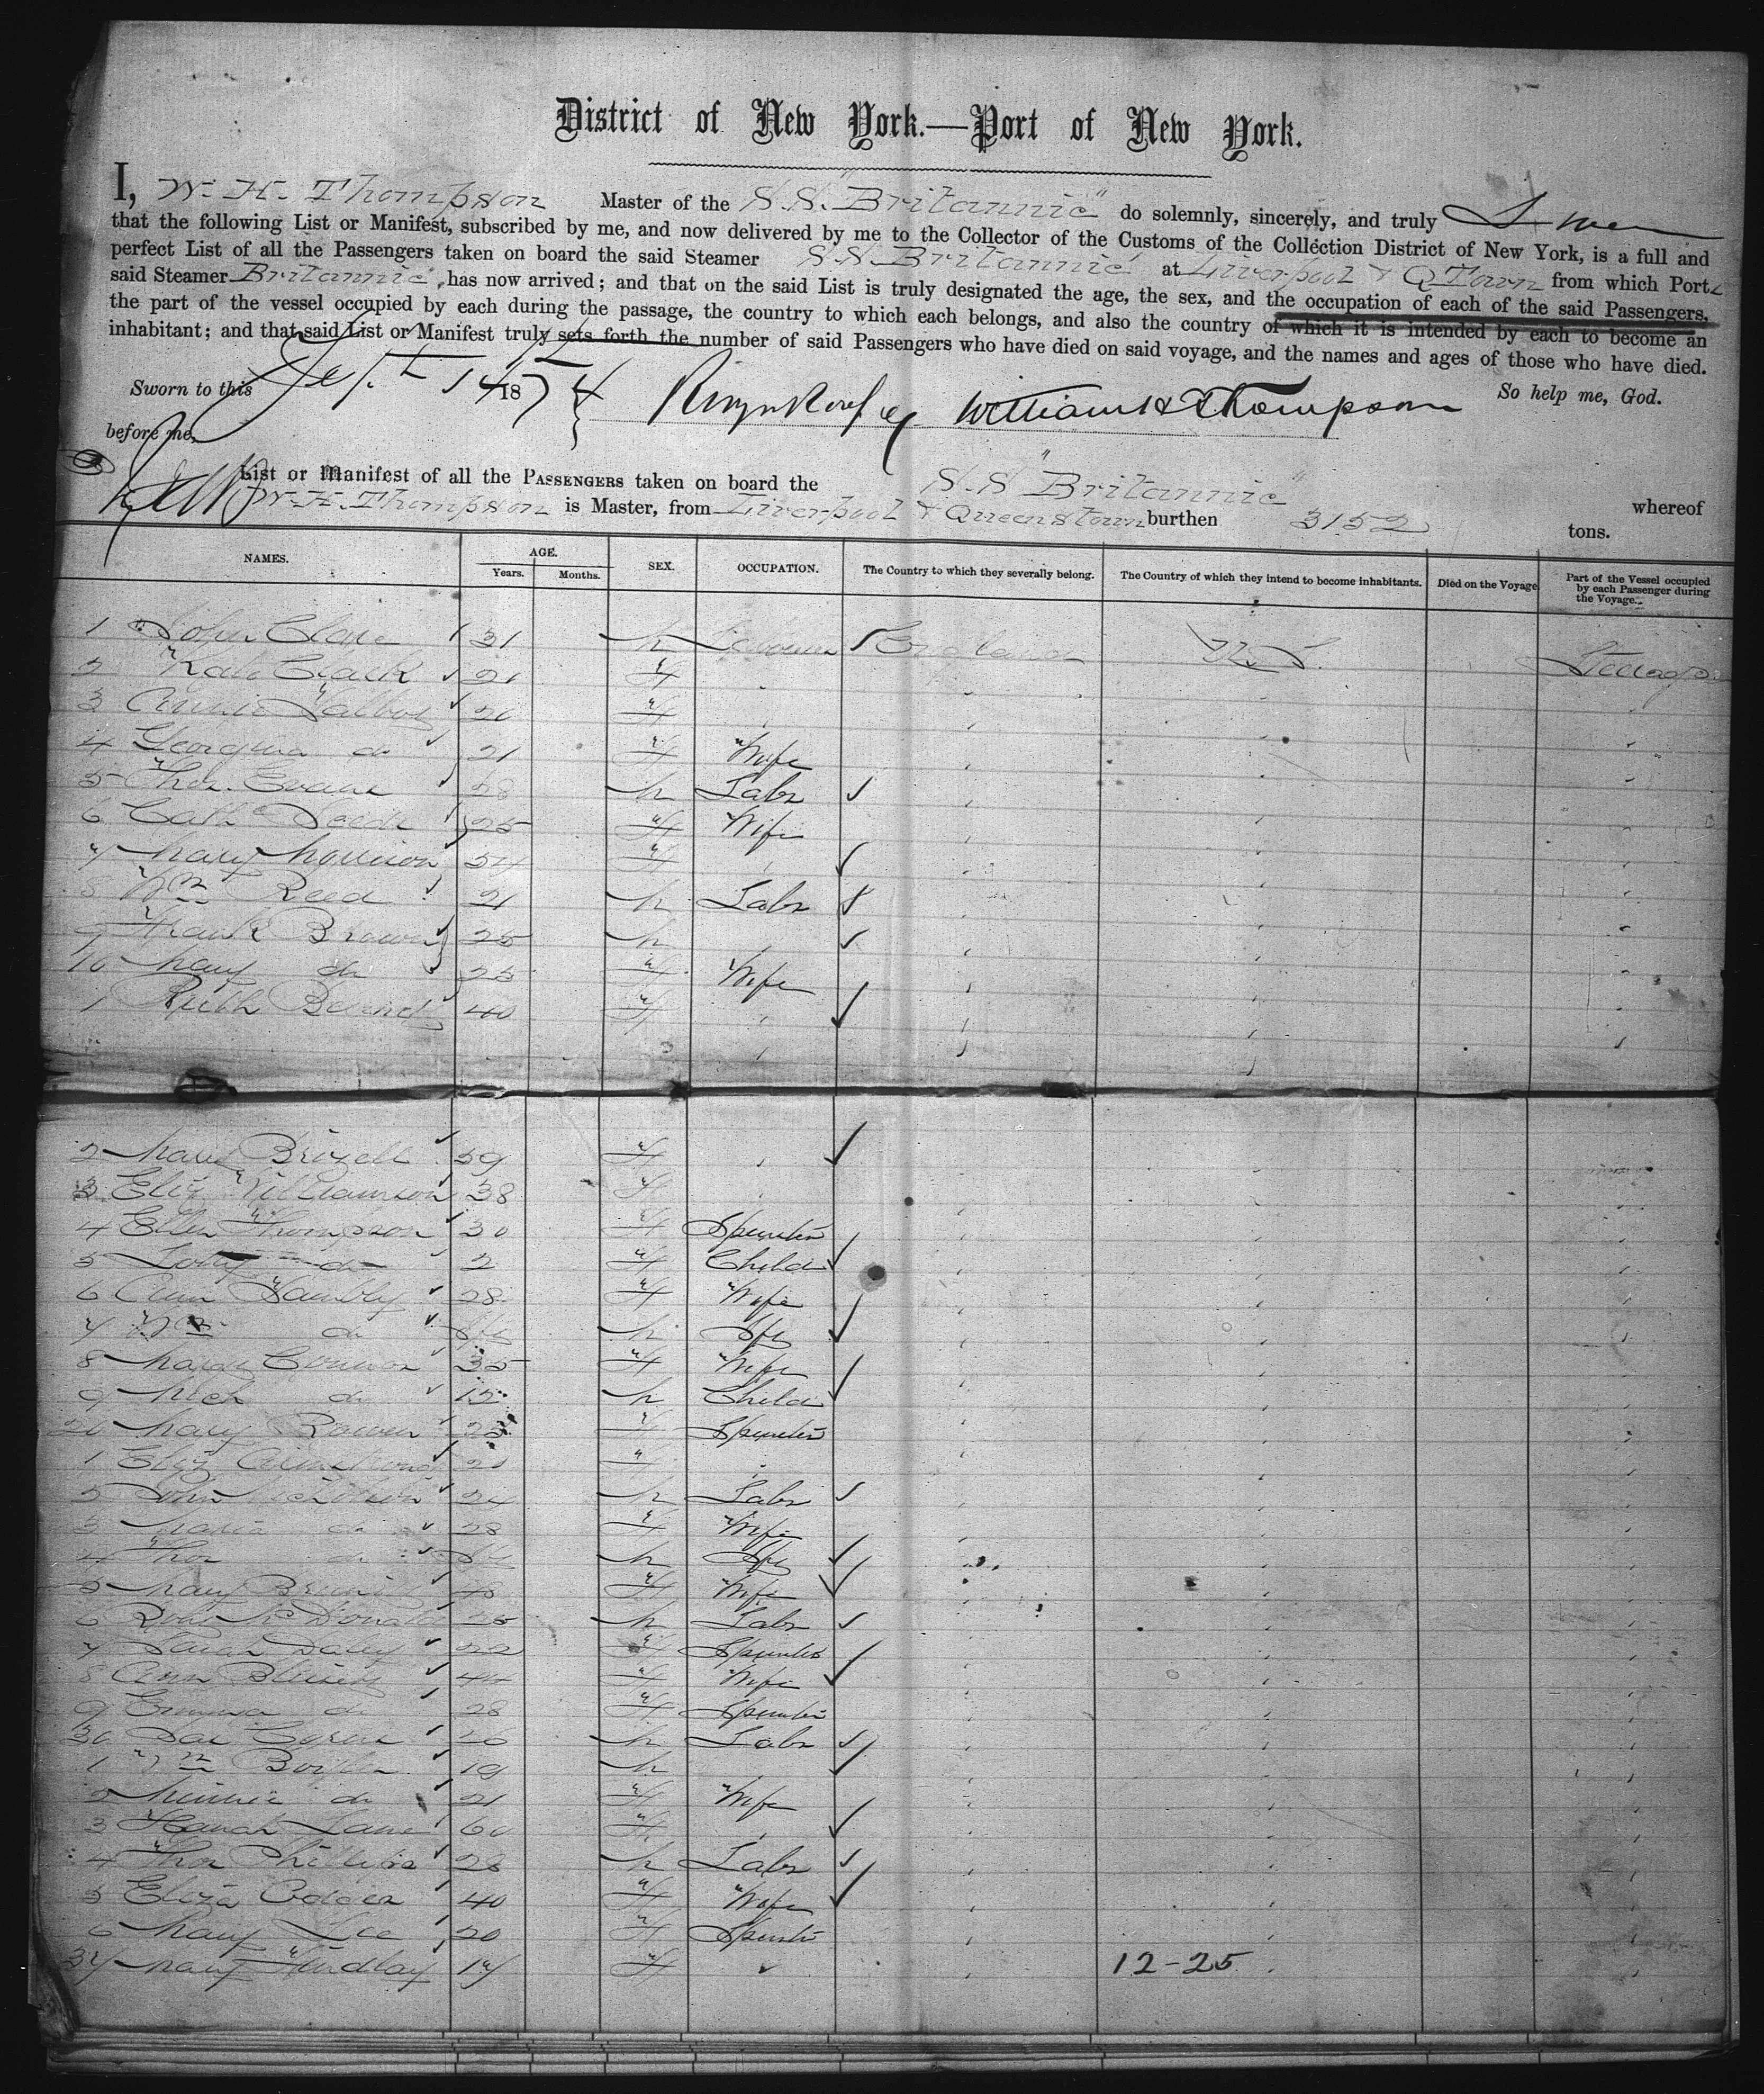 District of New York.—Port of New York.
I, W. H. Thompson Master of the S.S. "Britannic" do solemnly, sincerely, and truly Swear
that the following List or Manifest, subscribed by me, and now delivered by me to the Collector of the Customs of the Collection District of New York, is a full and
perfect List of all the Passengers taken on board the said Steamer S.S. Britannic at Liverpool & QTown from which Port
said Steamer Britannic, has now arrived; and that on the said List is truly designated the age, the sex, and the occupation of each of the said Passengers,
the part of the vessel occupied by each during the passage, the country to which each belongs, and also the country of which it is intended by each to become an
inhabitant; and that said List or Manifest truly sets forth the number of said Passengers who have died on said voyage, and the names and ages of those who have died.
So help me, God.
Sworn to this Sept 14 1874 William H Thompson
before me,
List or Manifest of all the PASSENGERS taken on board the S.S "Britannic" whereof
W. H. Thompson is Master, from Liverpool & Queenstown burthen 3152 tons.
NAMES. AGE. Years. Months. SEX. OCCUPATION. The Country to which they severally belong. The Country of which they intend to become inhabitants. Died on the Voyage Part of the Vessel occupied by each Passenger during the Voyage.
1 John 31 M Labourer England U.S. Steerage
2 Kate Clark 21 F
3 Annie Talbot 20 F
4 Georgina do 21 F Wife
5 Thos. Evans 28 M Labr
6 Cath 25 F Wife
7 Mary Morrison 54 F
8 Wm Reed 21 M Labr
9 Frank Brown 25 M
10 Mary do 25 F Wife
1 Ruth 40 F
2 Mary 59 F
3 Eliz Williamson 38 F
4 Ellen Thompson 30 F Spinster
5 do 2 F Child
6 Ann 28 F Wife
7 Wm do M
8 35 F Wife
9 Mich do 12 M Child
20 Mary 22 F Spinster
1 Eliz Armstrong 21 F
2 John Nicholson 24 M Labr
3 Maria do 28 F Wife
4 Thos do M
5 Mary 48 F Wife
6 Robt McDonald 25 M Labr
7 Sarah Daley 22 F Spinster
8 Ann 44 F Wife
9 Emma do 28 F Spinster
30 26 M Labr
1 Wm 19 M
2 Minnie do 21 F Wife
3 Hannah Lane 60 F
4 Thos Phillips 28 M Labr
5 Eliza 40 F Wife
6 Mary Lee 20 F Spinster
37 Mary Findlay 17 F
12-25